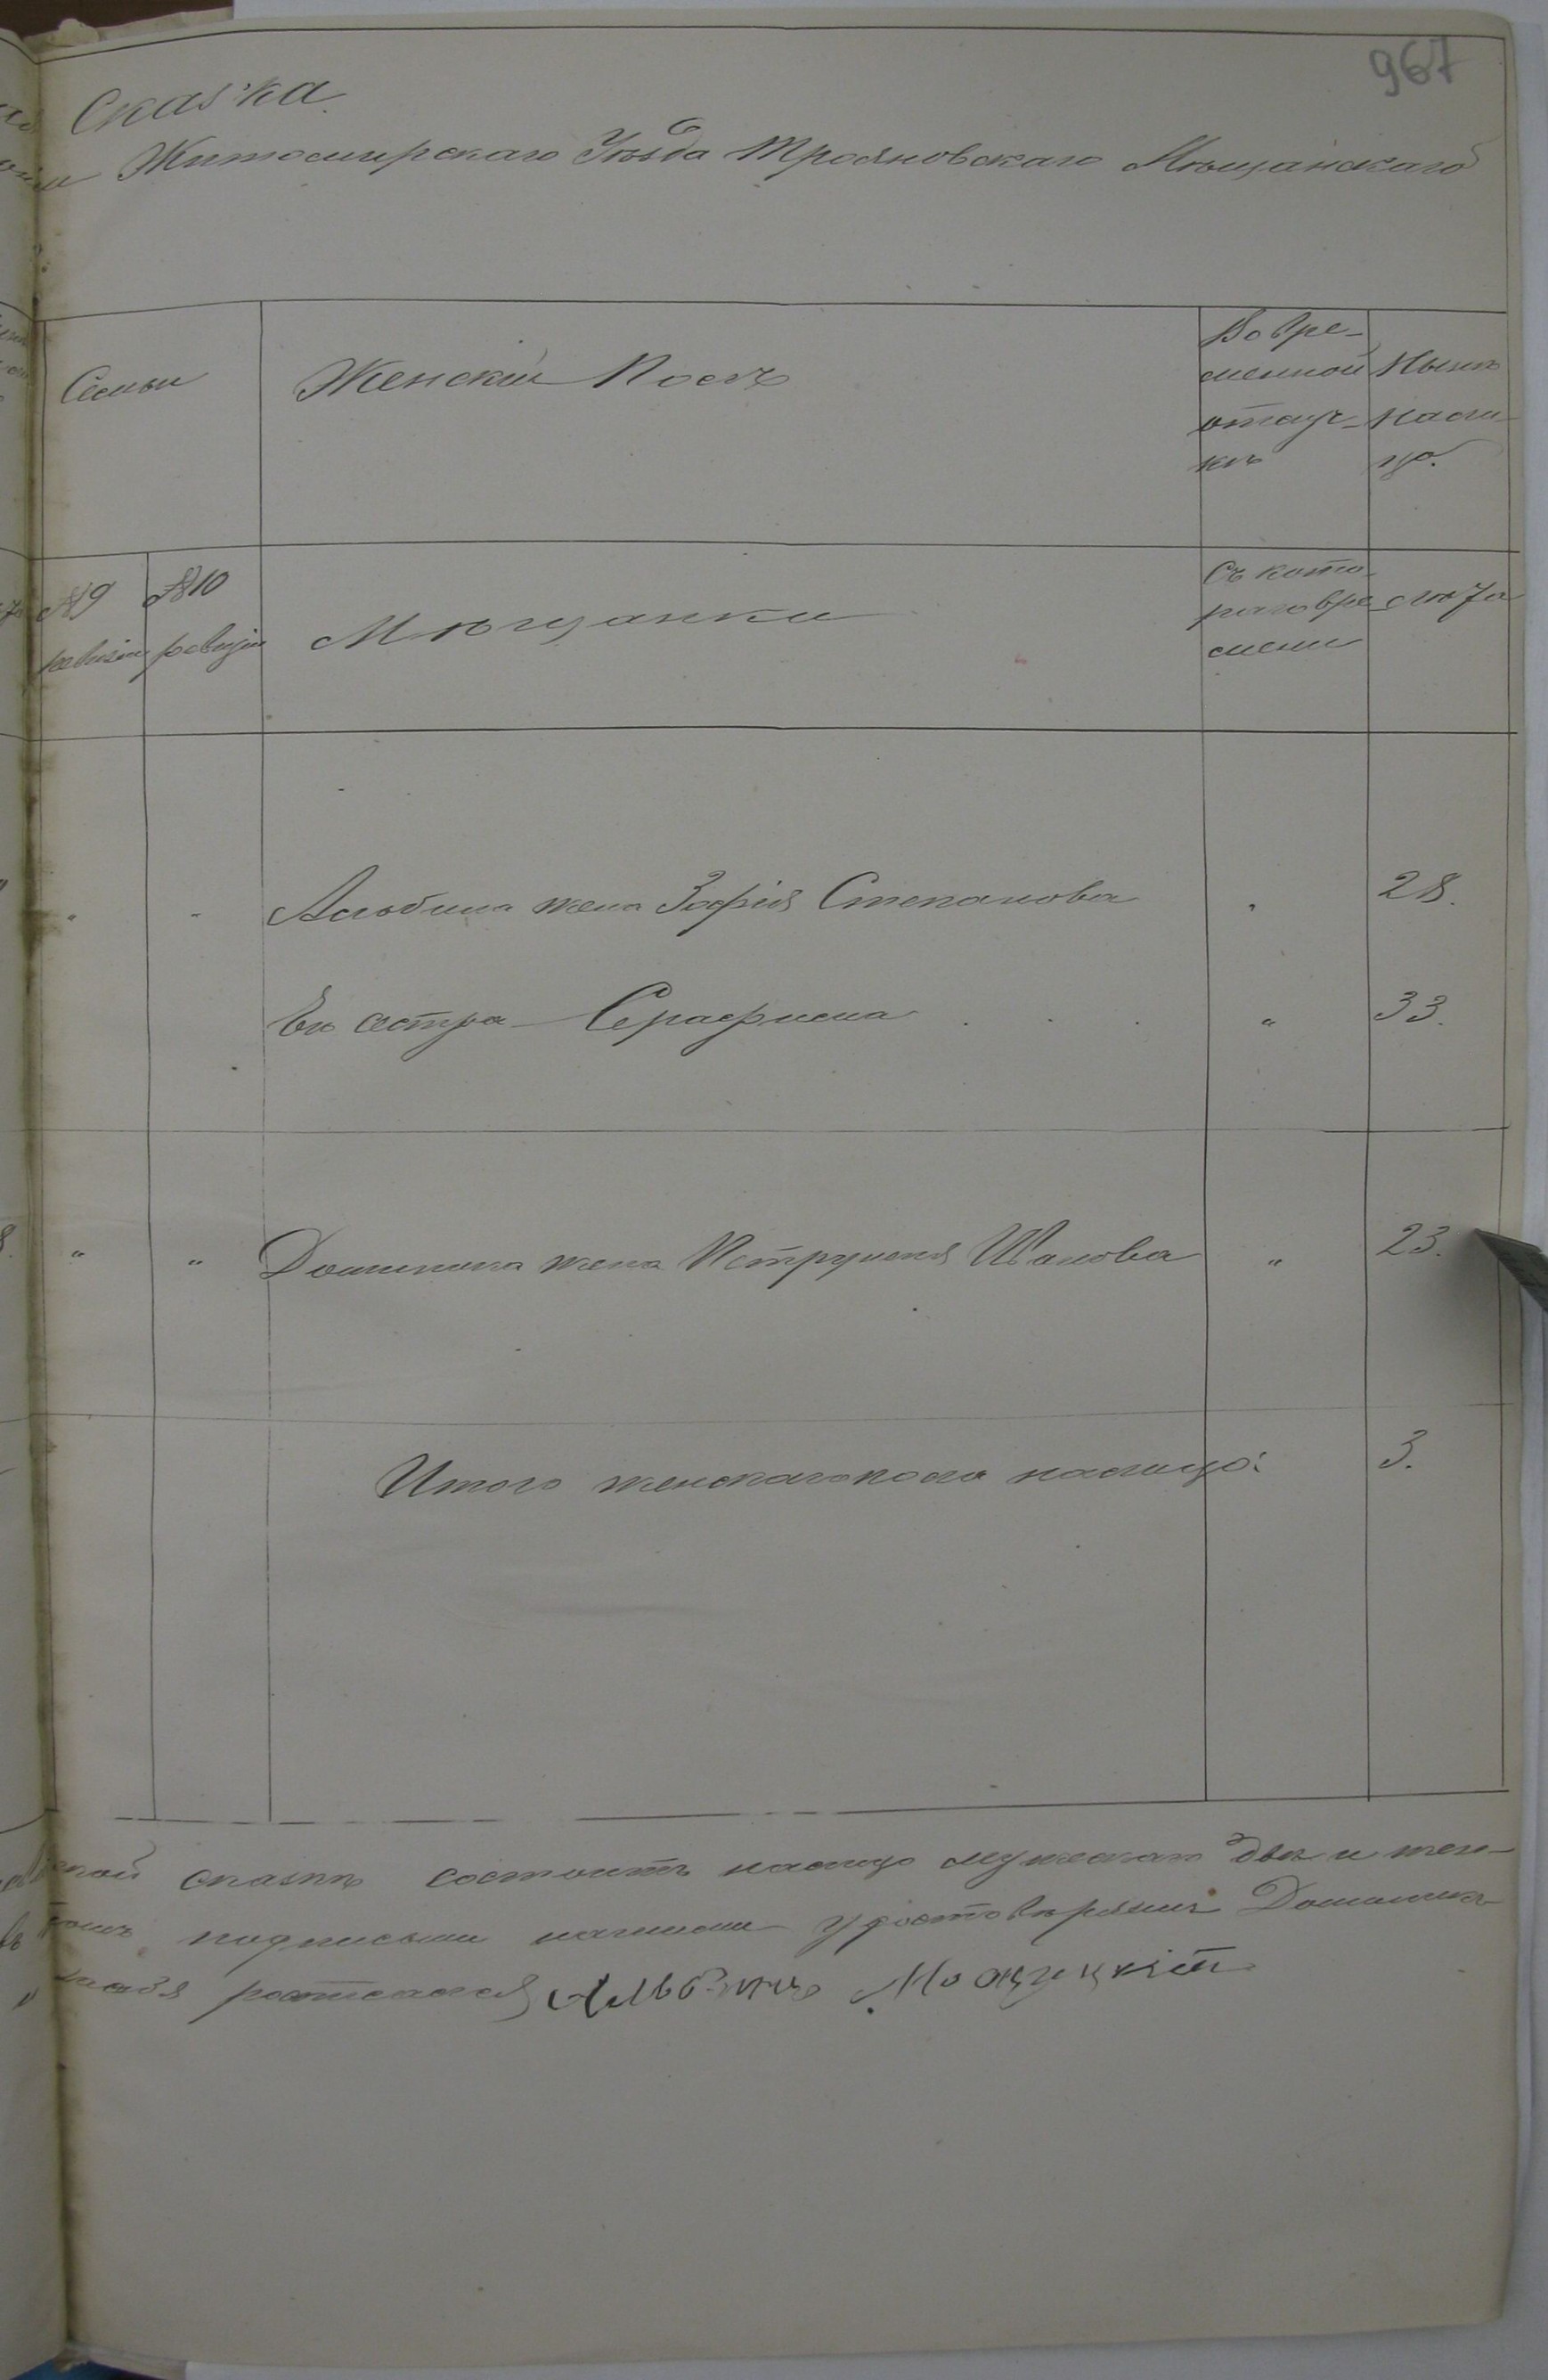 967
Сказка
Житомирскаго Уѣзда Трояновскаго Мѣщанскаго
Семьи
Женскій Полъ
Во вре-
менной
отлуч-
кѣ
Нынѣ
на ли-
цо.
№ 9
ревизіи
№ 10
ревизіи
Мѣщанки
Съ кото-
раго вре-
мени
лѣта
" " Альбина жена Зофія Степанова " 28.
Ея сестра Серафима . . . " 33.
" " Доминика жена Петрунеля Иванова " 23.
Итого женскаго пола налицо: 3.
сказкѣ состоитъ налицо мужеска двѣ и жен-
подписьми нашими удостовѣряемъ Доминика
росписался Альбинъ